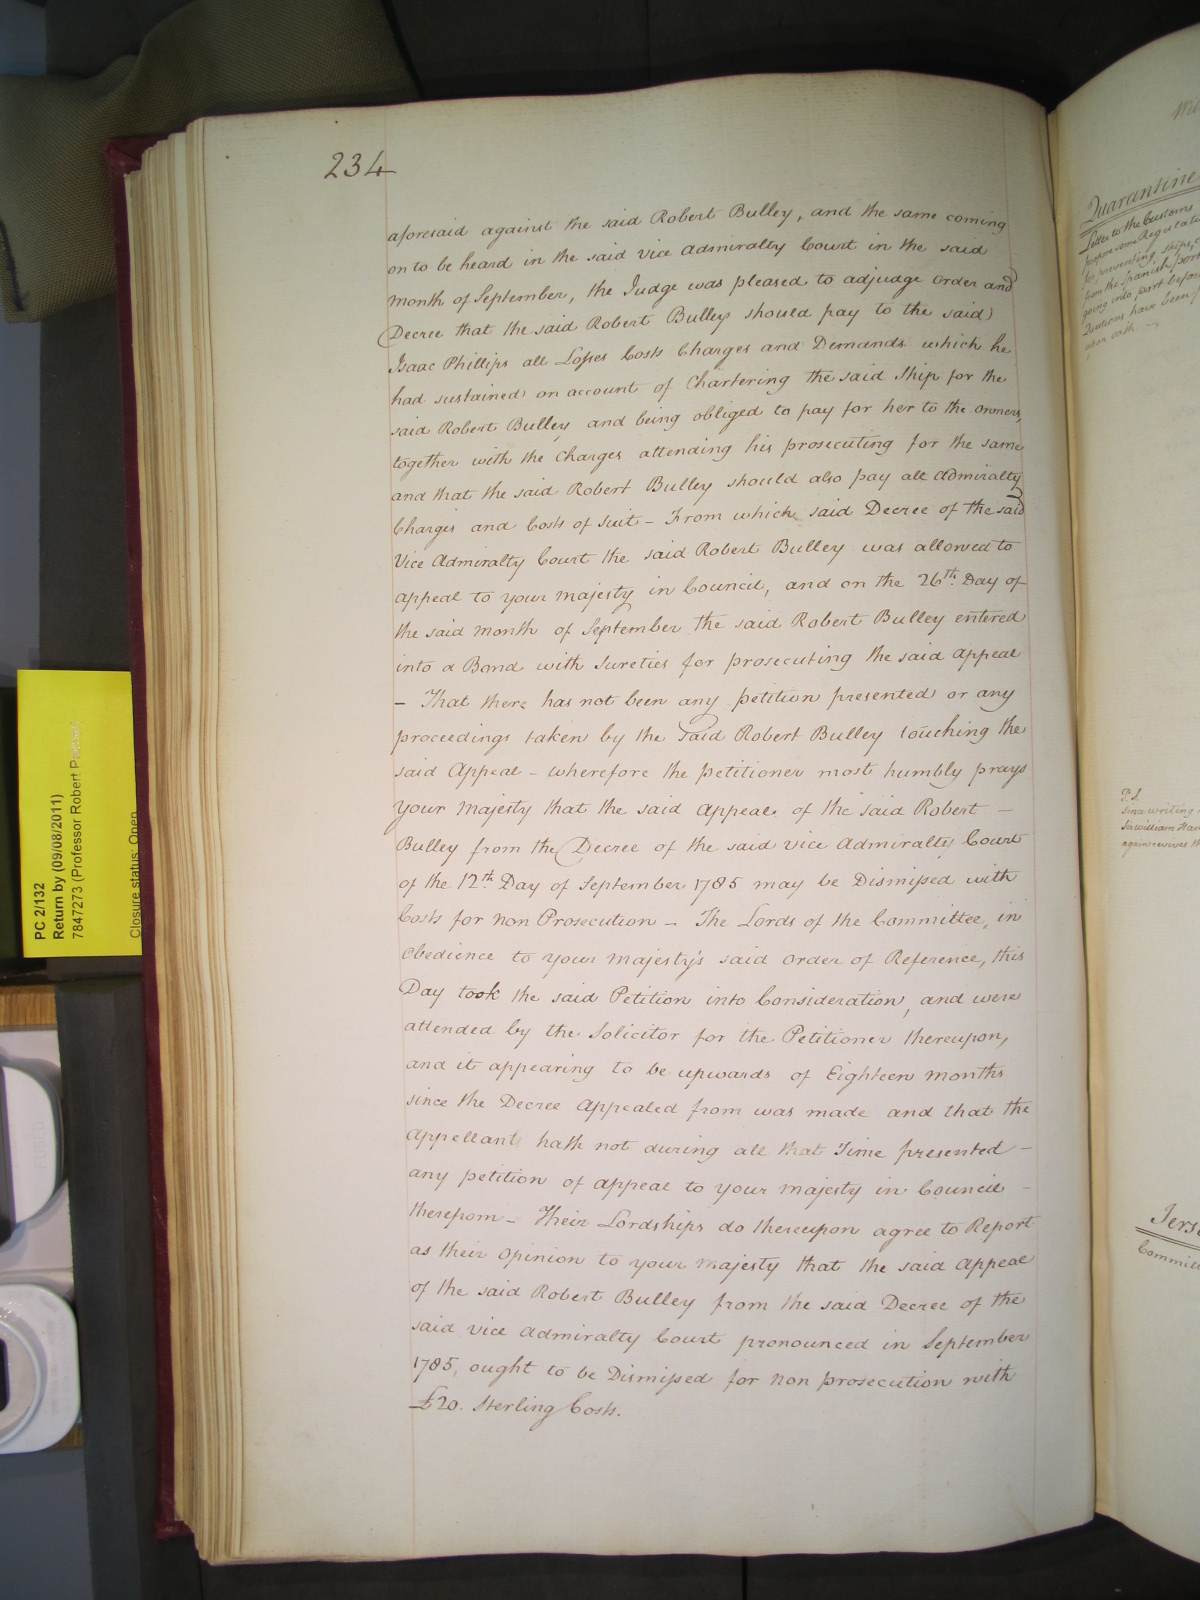 234
aforesaid against the said Robert Bulley, and the same coming
on to be heard in the said Vice Admiralty Court in the said
month of September, the Judge was pleased to adjudge order and
Decree that the said Robert Bulley should pay to the said
Isaac Phillips all Losses Costs Charges and Demands which he
had sustained on account of Chartering the said Ship for the
said Robert Bulley and being obliged to pay for her to the owners,
together with the Charges attending his prosecuting for the same
and that the said Robert Bulley should also pay all Admiralty
Charges and Costs of Suit - From which said Decree of the said
Vice Admiralty Court the said Robert Bulley was allowed to
appeal to your Majesty in Council, and on the 26th Day of
the said month of September the said Robert Bulley entered
into a Bond with Sureties for prosecuting the said Appeal
- That there has not been any petition presented or any
proceedings taken by the said Robert Bulley touching the
said Appeal - wherefore the petitioner most humbly prays
your Majesty that the said Appeal of the said Robert -
Bulley from the Decree of the said Vice Admiralty Court
of the 12th Day of September 1785 may be Dismissed with
Costs for non Prosecution - The Lords of the Committee, in
obedience to your Majesty's said Order of Reference, this
Day took the said Petition into Consideration, and were
attended by the Solicitor for the Petitioner thereupon,
and it appearing to be upwards of Eighteen months
since the Decree Appealed from was made and that the
Appellant hath not during all that Time presented -
any petition of appeal to your Majesty in Council -
thereupon - Their Lordships do thereupon agree to Report
as their Opinion to your Majesty that the said Appeal
of the said Robert Bulley from the said Decree of the
said Vice Admiralty Court pronounced in September
1785, ought to be Dismissed for non prosecution with
£20. Sterling Costs.
PC 2/132
Return by (09/08/2011)
7847273 (Professor Robert
Closure status: Open
Quarantine
Letter to the Customs
propose some Regulati
for preventing Ships
from the Spanish Por
going into port befor
Questions have been
upon oath
P.S.
Since writing
Sir William Ham
again
Jers
Committ